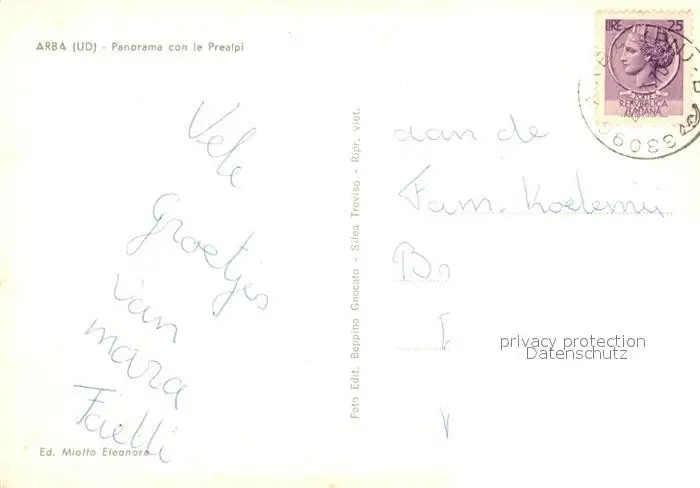 ARBA (UD) - Panorama con le Prealpi
Vele
Groetjes
van
mara
Faelli
Ed. Miotto Eleonora
Foto Edit. Beppino Gnocato - Silea Treviso - Ripr. viet.
LIRE 25
REPVBBLICA
ITALIANA
33090
aan de
Fam.
privacy protection
Datenschutz